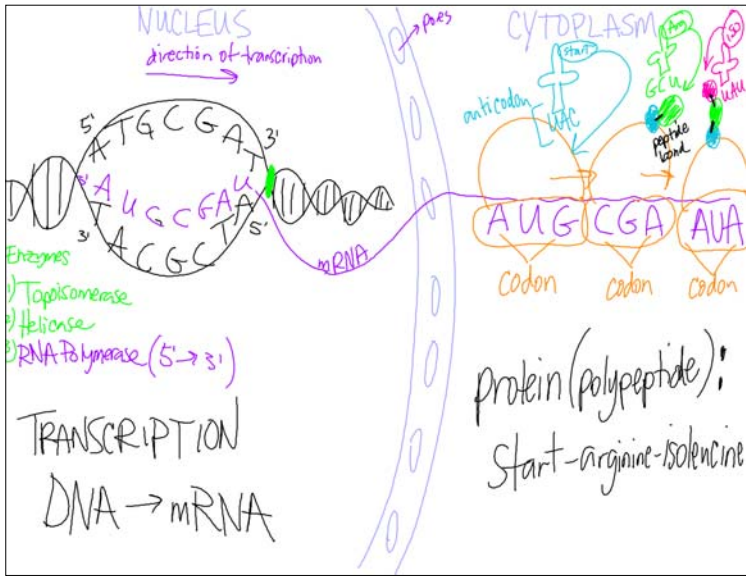 NUCLEUS
direction of transcription
5' ATGCGAT 3'
3' AUGCGAU
TACGCTA
3' 5'
mRNA
Enzymes
1) Topoisomerase
2) Helicase
3) RNA Polymerase (5' → 3')
TRANSCRIPTION
DNA → mRNA
pores
CYTOPLASM
start
anticodon
UAC
Arg
GCU
ISO
UAU
peptide
bond
AUG CGA AUA
codon codon codon
protein (polypeptide):
start-arginine-isoleucine